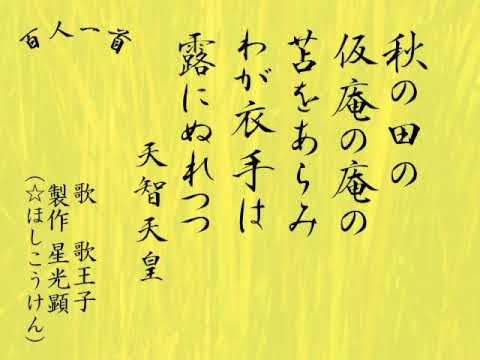 百人一首
秋の田の
仮庵の庵の
苫をあらみ
わが衣手は
露にぬれつつ
天智天皇
歌 歌王子
製作 星光顕
(☆ほしこうけん)